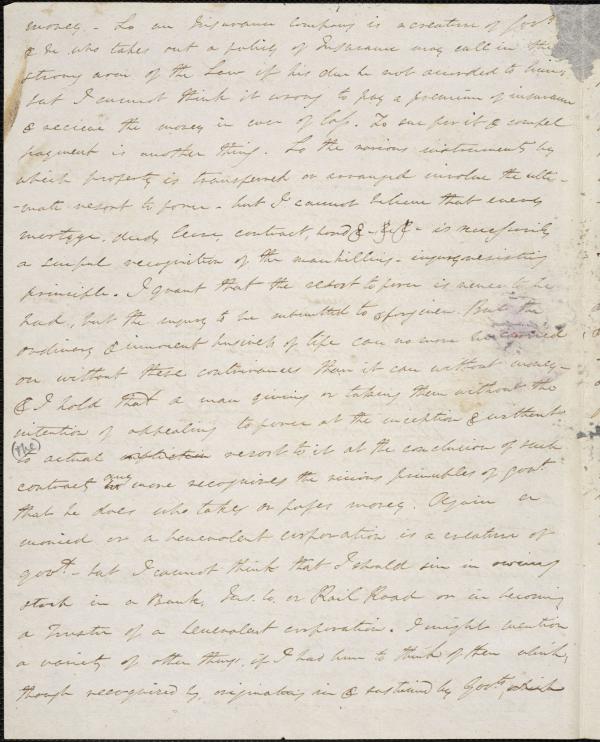 money - So an Insurance company is a creature of Govt.
& he who takes out a policy of Insurance may call in the
strong arm of the Law if his due be not awarded to him,
but I cannot think it wrong to pay a premium of insurance
& recieve the money in case of loss. To sue for it & compel
payment is another thing. So the various instruments by
which property is transferred or arranged involve the ulti-
-mate resort to force - but I cannot believe that every
mortgage, deed, lease, contract, bond &c. &c. - is necessarily
a sinful recognition of the mankilling - injury resisting
principle. I grant that the resort to force is never to be
had, but the injury to be submitted to & forgiven. But the
ordinary & innocent business of life can no more be carried
on without these contrivances than it can without money -
& I hold that a man giving or taking them without the
intention of appealing to force at the inception & without
(the) actual resort to it at the conclusion of such
contract any more recognizes the vicious principles of govt.
than he does who takes or passes money. Again a
monied or a benevolent corporation is a creature of
govt. - but I cannot think that I should sin in owning
stock in a Bank, Ins. Co. or Rail Road or in becoming
a Trustee of a benevolent corporation. I might mention
a variety of other things, if I had time to think of them which,
though recognized by, originating in & sustained by Govt.